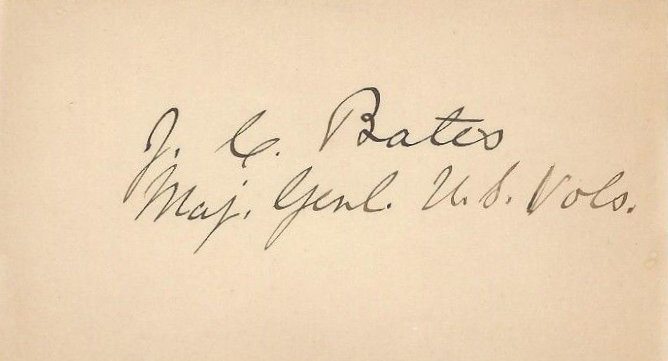 J. C. Bates
Maj. Genl. U.S. Vols.